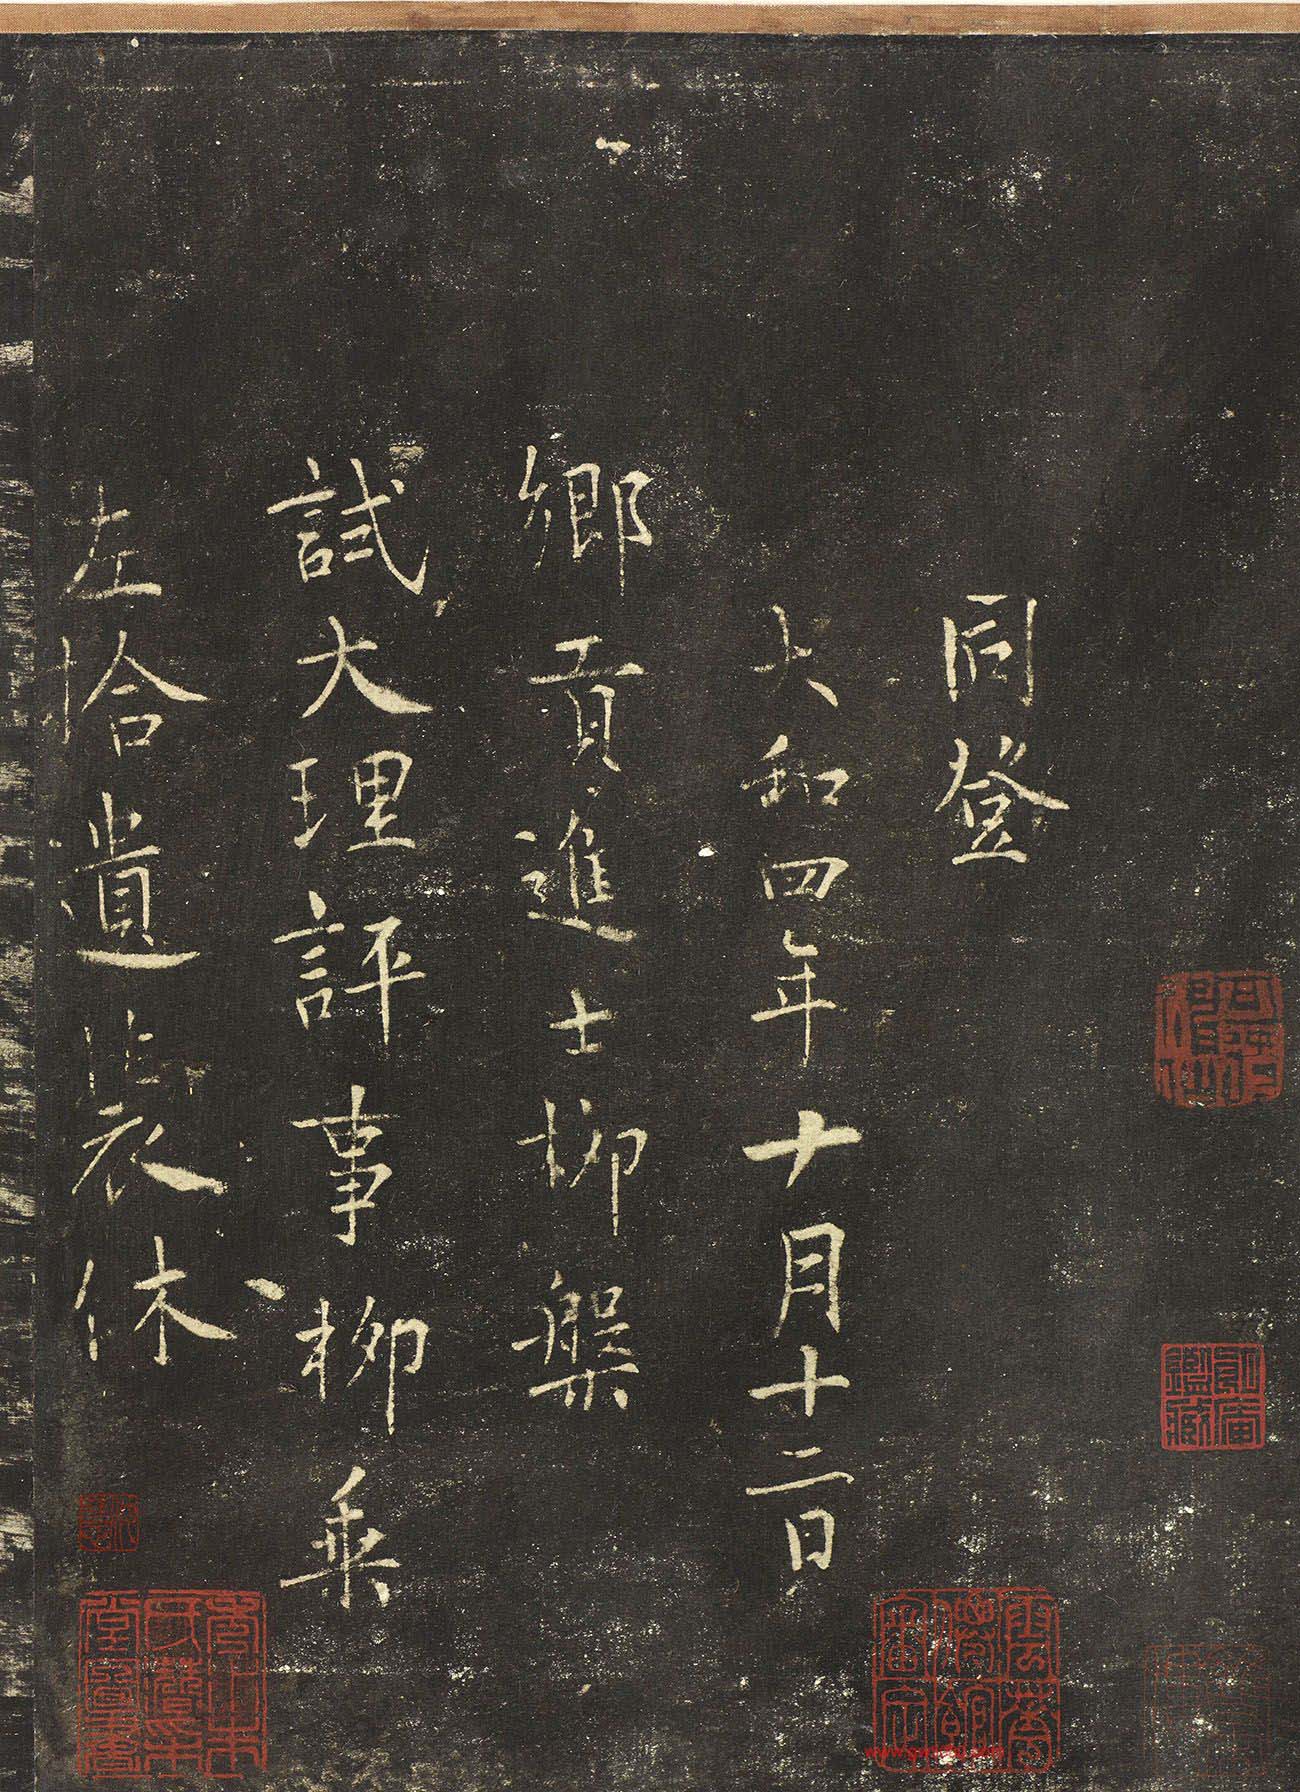 左拾遺裴休
試大理評事柳乘
鄉貢進士柳槃
大和四年十月十二日
同登